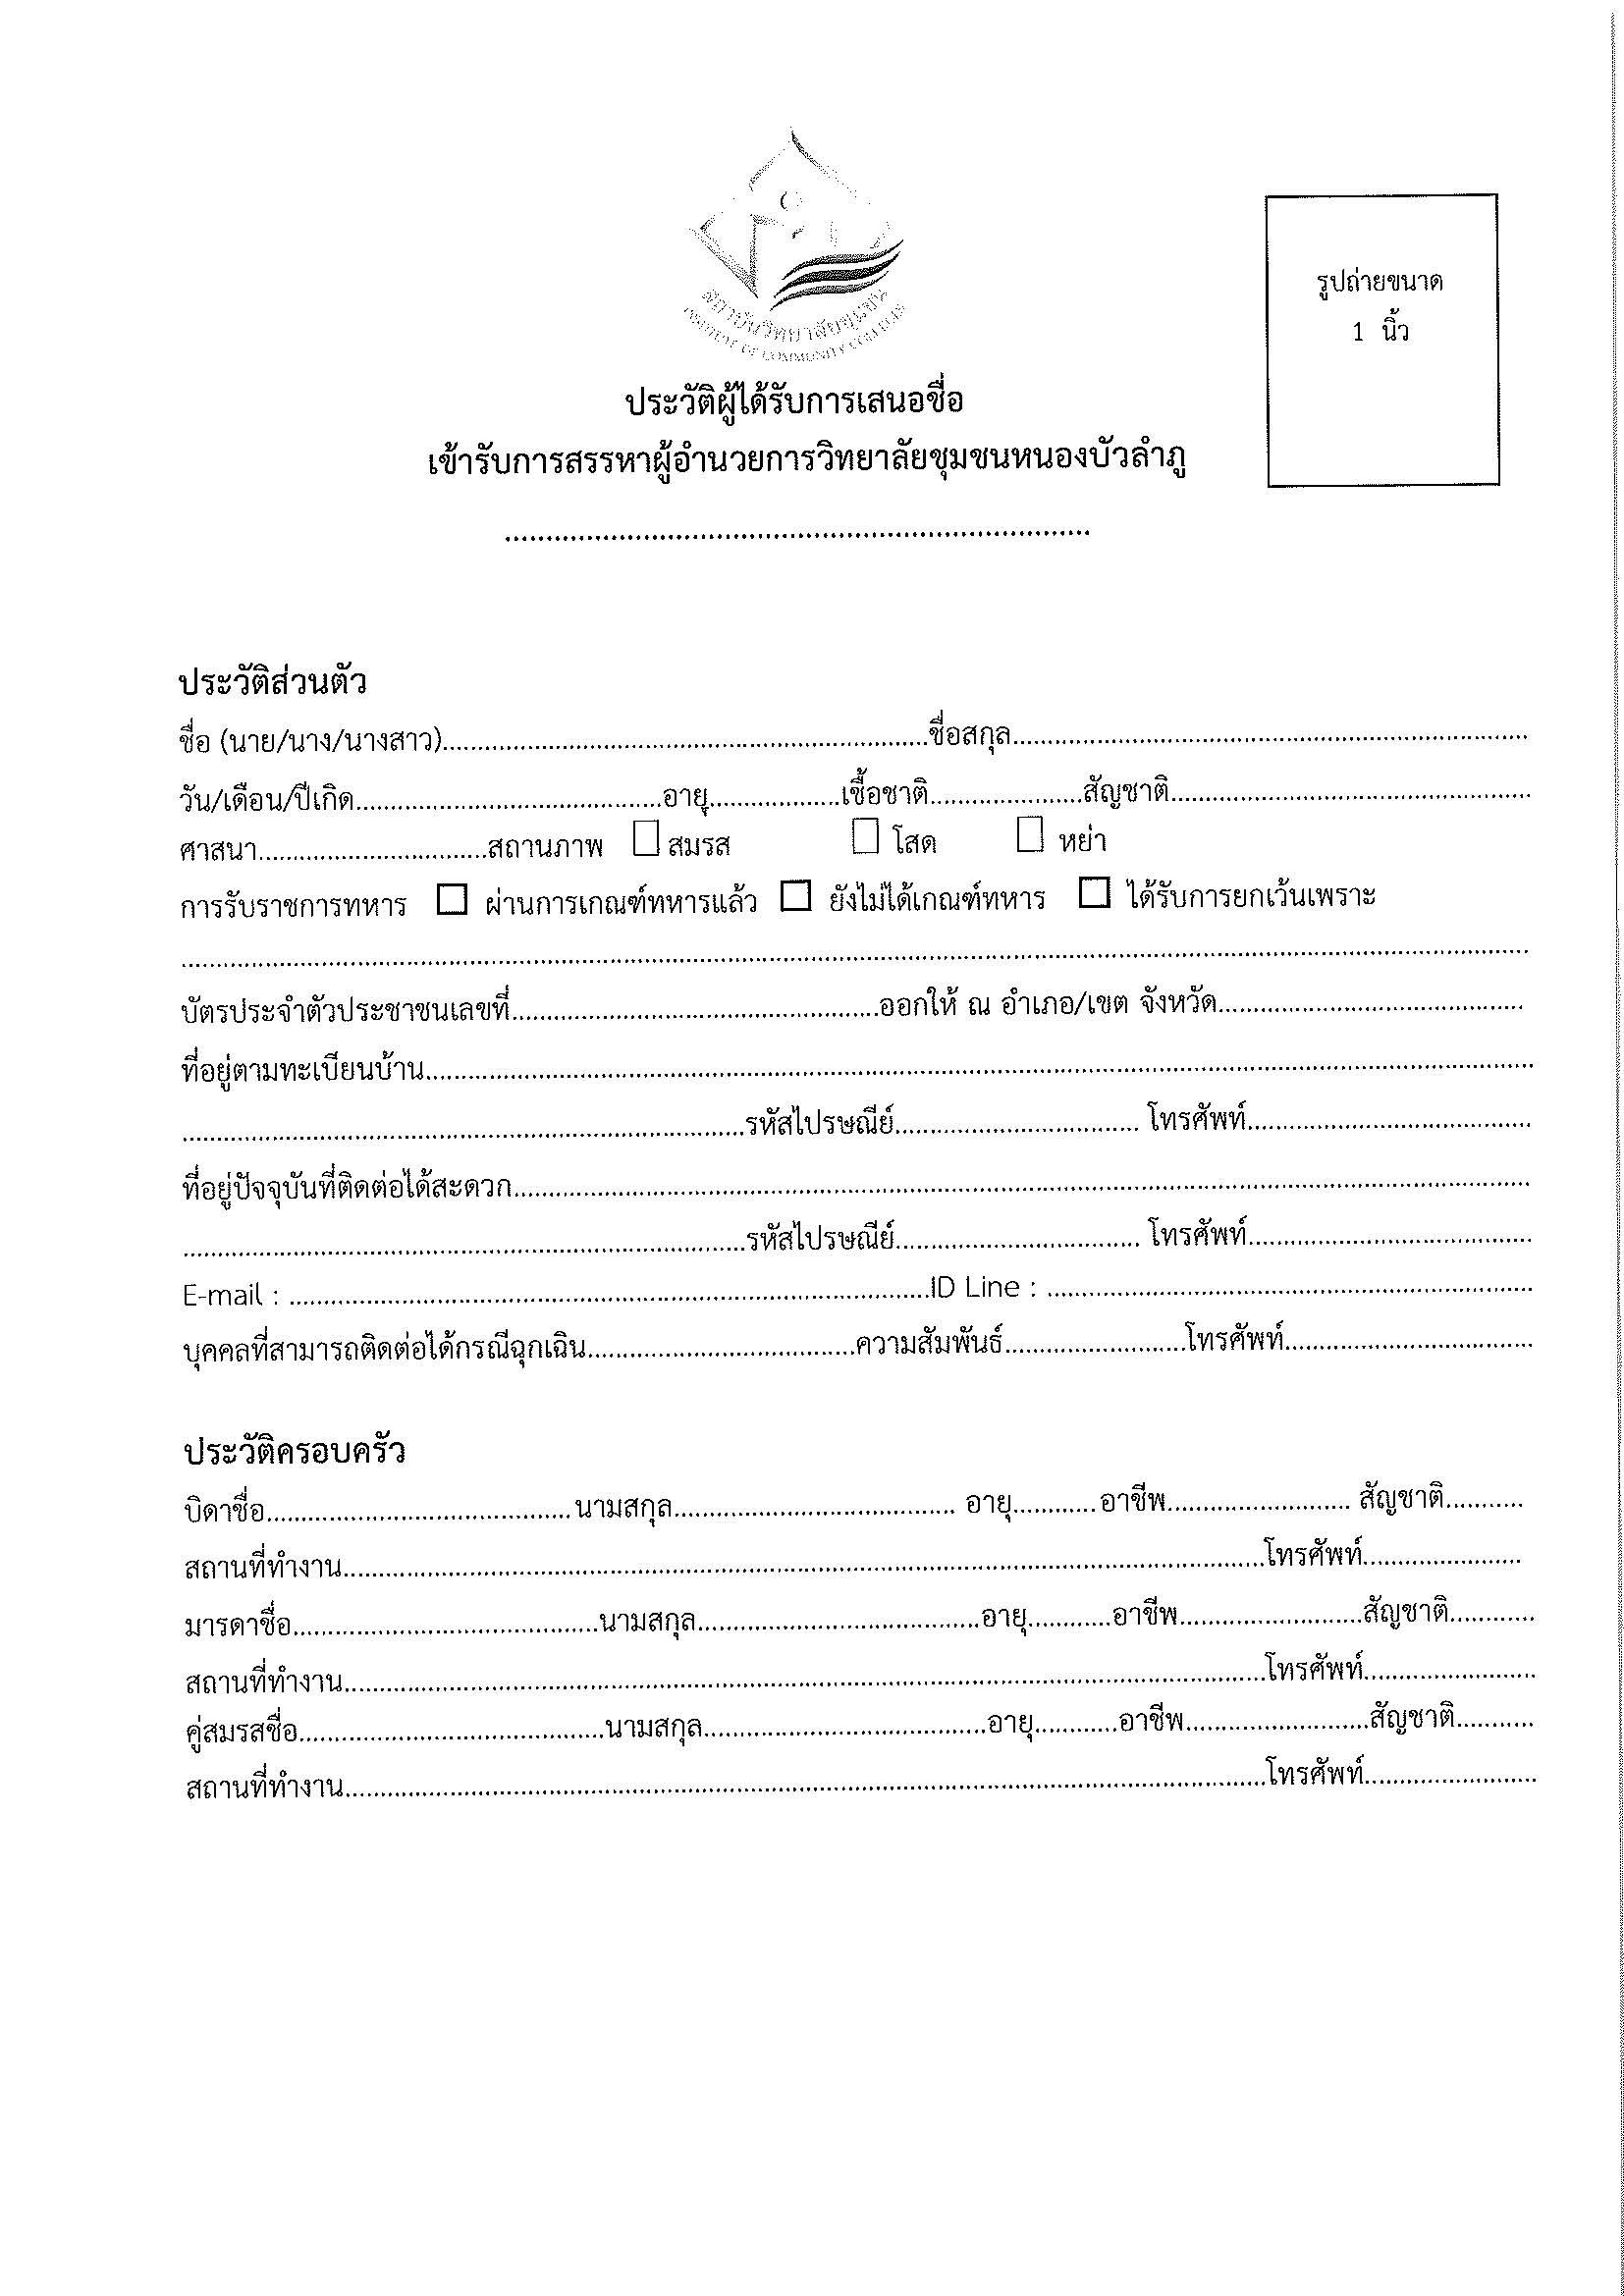 สถาบันวิทยาลัยชุมชน
INSTITUTE OF COMMUNITY COLLEGES
รูปถ่ายขนาด
1 นิ้ว
ประวัติผู้ได้รับการเสนอชื่อ
เข้ารับการสรรหาผู้อำนวยการวิทยาลัยชุมชนหนองบัวลำภู
ประวัติส่วนตัว
ชื่อ (นาย/นาง/นางสาว)..........ชื่อสกุล..........
วัน/เดือน/ปีเกิด..........อายุ..........เชื้อชาติ..........สัญชาติ..........
ศาสนา..........สถานภาพ ☐ สมรส ☐ โสด ☐ หย่า
การรับราชการทหาร ☐ ผ่านการเกณฑ์ทหารแล้ว ☐ ยังไม่ได้เกณฑ์ทหาร ☐ ได้รับการยกเว้นเพราะ
..........
บัตรประจำตัวประชาชนเลขที่..........ออกให้ ณ อำเภอ/เขต จังหวัด..........
ที่อยู่ตามทะเบียนบ้าน..........
..........รหัสไปรษณีย์.......... โทรศัพท์..........
ที่อยู่ปัจจุบันที่ติดต่อได้สะดวก..........
..........รหัสไปรษณีย์.......... โทรศัพท์..........
E-mail : ..........ID Line : ..........
บุคคลที่สามารถติดต่อได้กรณีฉุกเฉิน..........ความสัมพันธ์..........โทรศัพท์..........
ประวัติครอบครัว
บิดาชื่อ..........นามสกุล.......... อายุ..........อาชีพ.......... สัญชาติ..........
สถานที่ทำงาน..........โทรศัพท์..........
มารดาชื่อ..........นามสกุล..........อายุ..........อาชีพ..........สัญชาติ..........
สถานที่ทำงาน..........โทรศัพท์..........
คู่สมรสชื่อ..........นามสกุล..........อายุ..........อาชีพ..........สัญชาติ..........
สถานที่ทำงาน..........โทรศัพท์..........